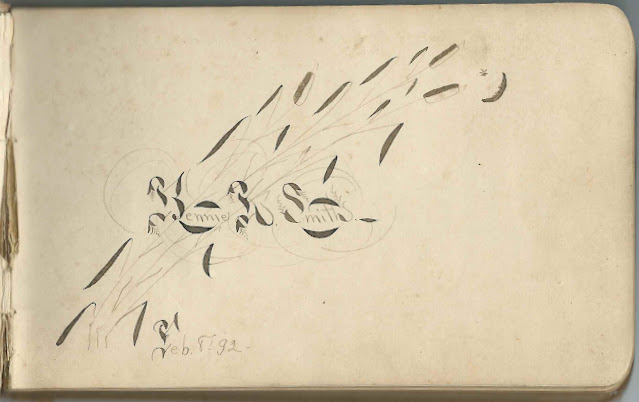 R. Smith.
Feb. 8" 92-